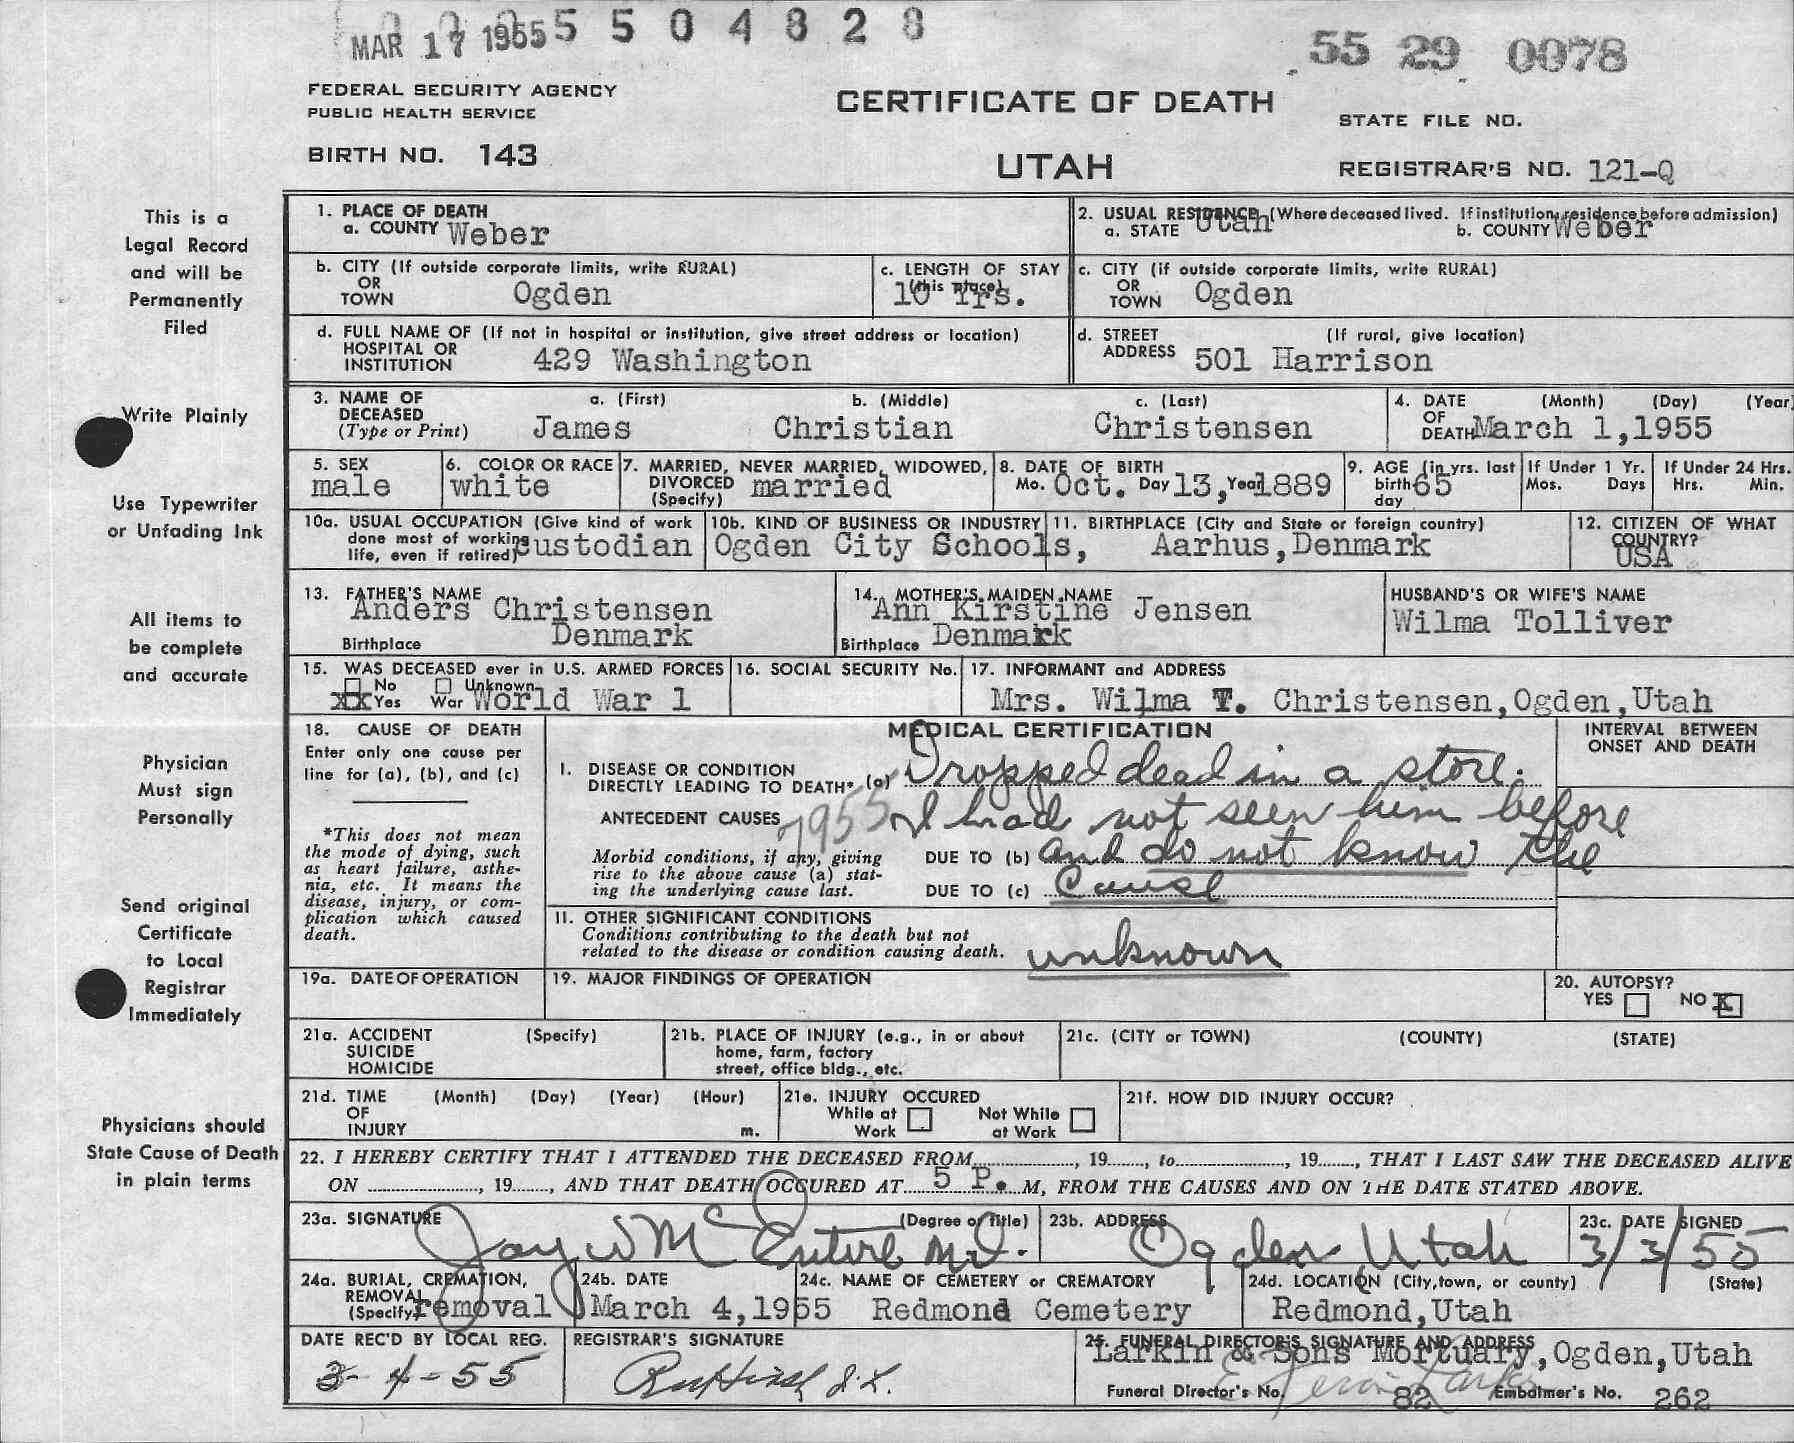 MAR 17 1955 5 5 0 4 8 2 8
55 29 0078
FEDERAL SECURITY AGENCY
PUBLIC HEALTH SERVICE
CERTIFICATE OF DEATH
STATE FILE NO.
BIRTH NO. 143
UTAH
REGISTRAR'S NO. 121-Q
This is a
Legal Record
and will be
Permanently
Filed
Write Plainly
Use Typewriter
or Unfading Ink
All items to
be complete
and accurate
Physician
Must sign
Personally
Send original
Certificate
to Local
Registrar
Immediately
Physicians should
State Cause of Death
in plain terms
1. PLACE OF DEATH
a. COUNTY Weber
2. USUAL RESIDENCE (Where deceased lived. If institution, residence before admission)
a. STATE Utah b. COUNTY Weber
b. CITY (If outside corporate limits, write RURAL)
OR
TOWN Ogden
c. LENGTH OF STAY
(this place)
10 Yrs.
c. CITY (if outside corporate limits, write RURAL)
OR
TOWN Ogden
d. FULL NAME OF (If not in hospital or institution, give street address or location)
HOSPITAL OR
INSTITUTION 429 Washington
d. STREET (If rural, give location)
ADDRESS 501 Harrison
3. NAME OF
DECEASED
(Type or Print)
a. (First) b. (Middle) c. (Last)
James Christian Christensen
4. DATE (Month) (Day) (Year)
OF
DEATH March 1,1955
5. SEX
male
6. COLOR OR RACE
white
7. MARRIED, NEVER MARRIED, WIDOWED,
DIVORCED married
(Specify)
8. DATE OF BIRTH
Mo. Oct. Day 13, Year 1889
9. AGE (in yrs. last
birth 65
day
If Under 1 Yr.
Mos. Days
If Under 24 Hrs.
Hrs. Min.
10a. USUAL OCCUPATION (Give kind of work
done most of working
life, even if retired) custodian
10b. KIND OF BUSINESS OR INDUSTRY
Ogden City Schools,
11. BIRTHPLACE (City and State or foreign country)
Aarhus,Denmark
12. CITIZEN OF WHAT
COUNTRY?
USA
13. FATHER'S NAME
Anders Christensen
Birthplace Denmark
14. MOTHER'S MAIDEN NAME
Ann Kirstine Jensen
Birthplace Denmark
HUSBAND'S OR WIFE'S NAME
Wilma Tolliver
15. WAS DECEASED ever in U.S. ARMED FORCES
No Unknown
xx Yes War World War 1
16. SOCIAL SECURITY No.
17. INFORMANT and ADDRESS
Mrs. Wilma T. Christensen,Ogden,Utah
18. CAUSE OF DEATH
Enter only one cause per
line for (a), (b), and (c)
*This does not mean
the mode of dying, such
as heart failure, asthe-
nia, etc. It means the
disease, injury, or com-
plication which caused
death.
MEDICAL CERTIFICATION
INTERVAL BETWEEN
ONSET AND DEATH
I. DISEASE OR CONDITION
DIRECTLY LEADING TO DEATH* (a) Dropped dead in a store.
ANTECEDENT CAUSES 7955 I had not seen him before
Morbid conditions, if any, giving
rise to the above cause (a) stat-
ing the underlying cause last.
DUE TO (b) and do not know the
DUE TO (c) cause
II. OTHER SIGNIFICANT CONDITIONS
Conditions contributing to the death but not
related to the disease or condition causing death. unknown
19a. DATE OF OPERATION
19. MAJOR FINDINGS OF OPERATION
20. AUTOPSY?
YES NO X
21a. ACCIDENT (Specify)
SUICIDE
HOMICIDE
21b. PLACE OF INJURY (e.g., in or about
home, farm, factory
street, office bldg., etc.
21c. (CITY or TOWN) (COUNTY) (STATE)
21d. TIME (Month) (Day) (Year) (Hour)
OF
INJURY m.
21e. INJURY OCCURED
While at Not While
Work at Work
21f. HOW DID INJURY OCCUR?
22. I HEREBY CERTIFY THAT I ATTENDED THE DECEASED FROM, 19, to, 19, THAT I LAST SAW THE DECEASED ALIVE
ON, 19, AND THAT DEATH OCCURED AT 5 P. M, FROM THE CAUSES AND ON THE DATE STATED ABOVE.
23a. SIGNATURE (Degree or Title)
Jay W McEntire M.D.
23b. ADDRESS
Ogden Utah
23c. DATE SIGNED
3/3/55
24a. BURIAL, CREMATION,
REMOVAL
(Specify) removal
24b. DATE
March 4,1955
24c. NAME OF CEMETERY or CREMATORY
Redmond Cemetery
24d. LOCATION (City,town, or county) (State)
Redmond,Utah
DATE REC'D BY LOCAL REG.
3-4-55
REGISTRAR'S SIGNATURE
25. FUNERAL DIRECTOR'S SIGNATURE AND ADDRESS
Larkin & Sons Mortuary,Ogden,Utah
Funeral Director's No. 82 Embalmer's No. 262